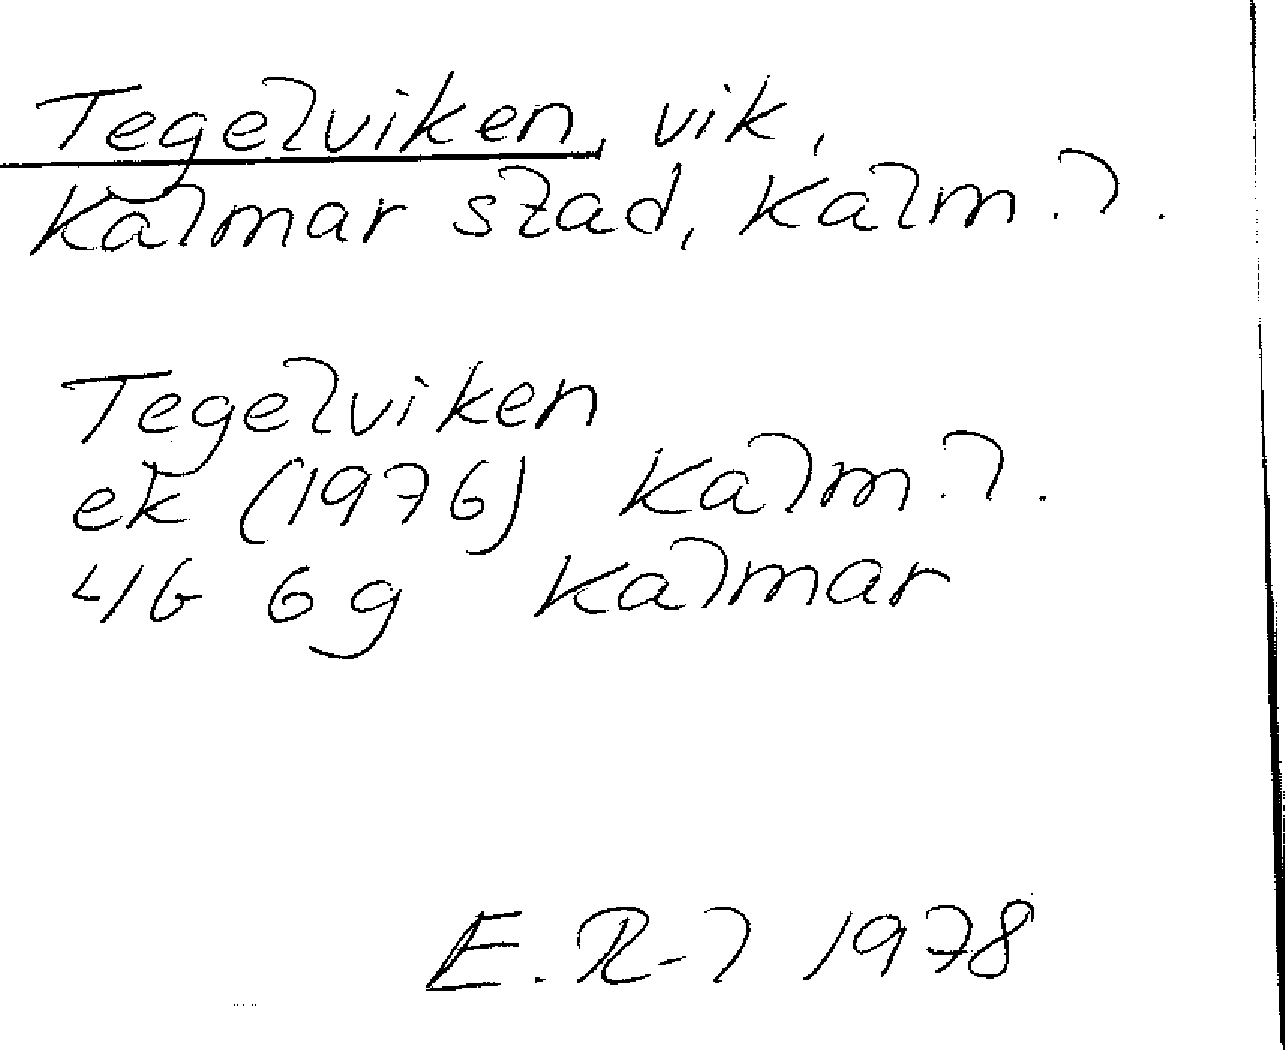 Tegelviken, vik,
Kalmar stad, Kalm. l.
Tegelviken
ek (1976) Kalm. l.
4G 6g Kalmar
E. R-l 1978